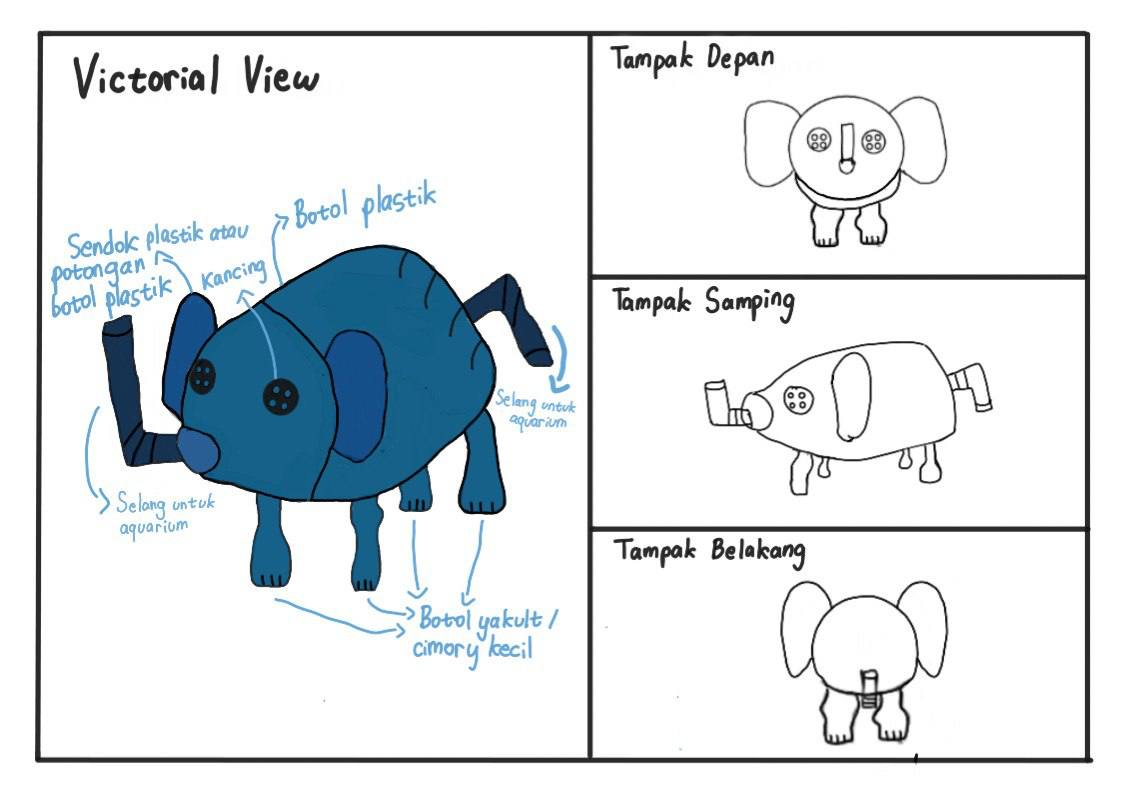 Victorial View
Botol plastik
Sendok plastik atau
potongan
botol plastik
Kancing
Selang untuk
aquarium
Selang untuk
aquarium
Botol yakult /
cimory kecil
Tampak Depan
Tampak Samping
Tampak Belakang